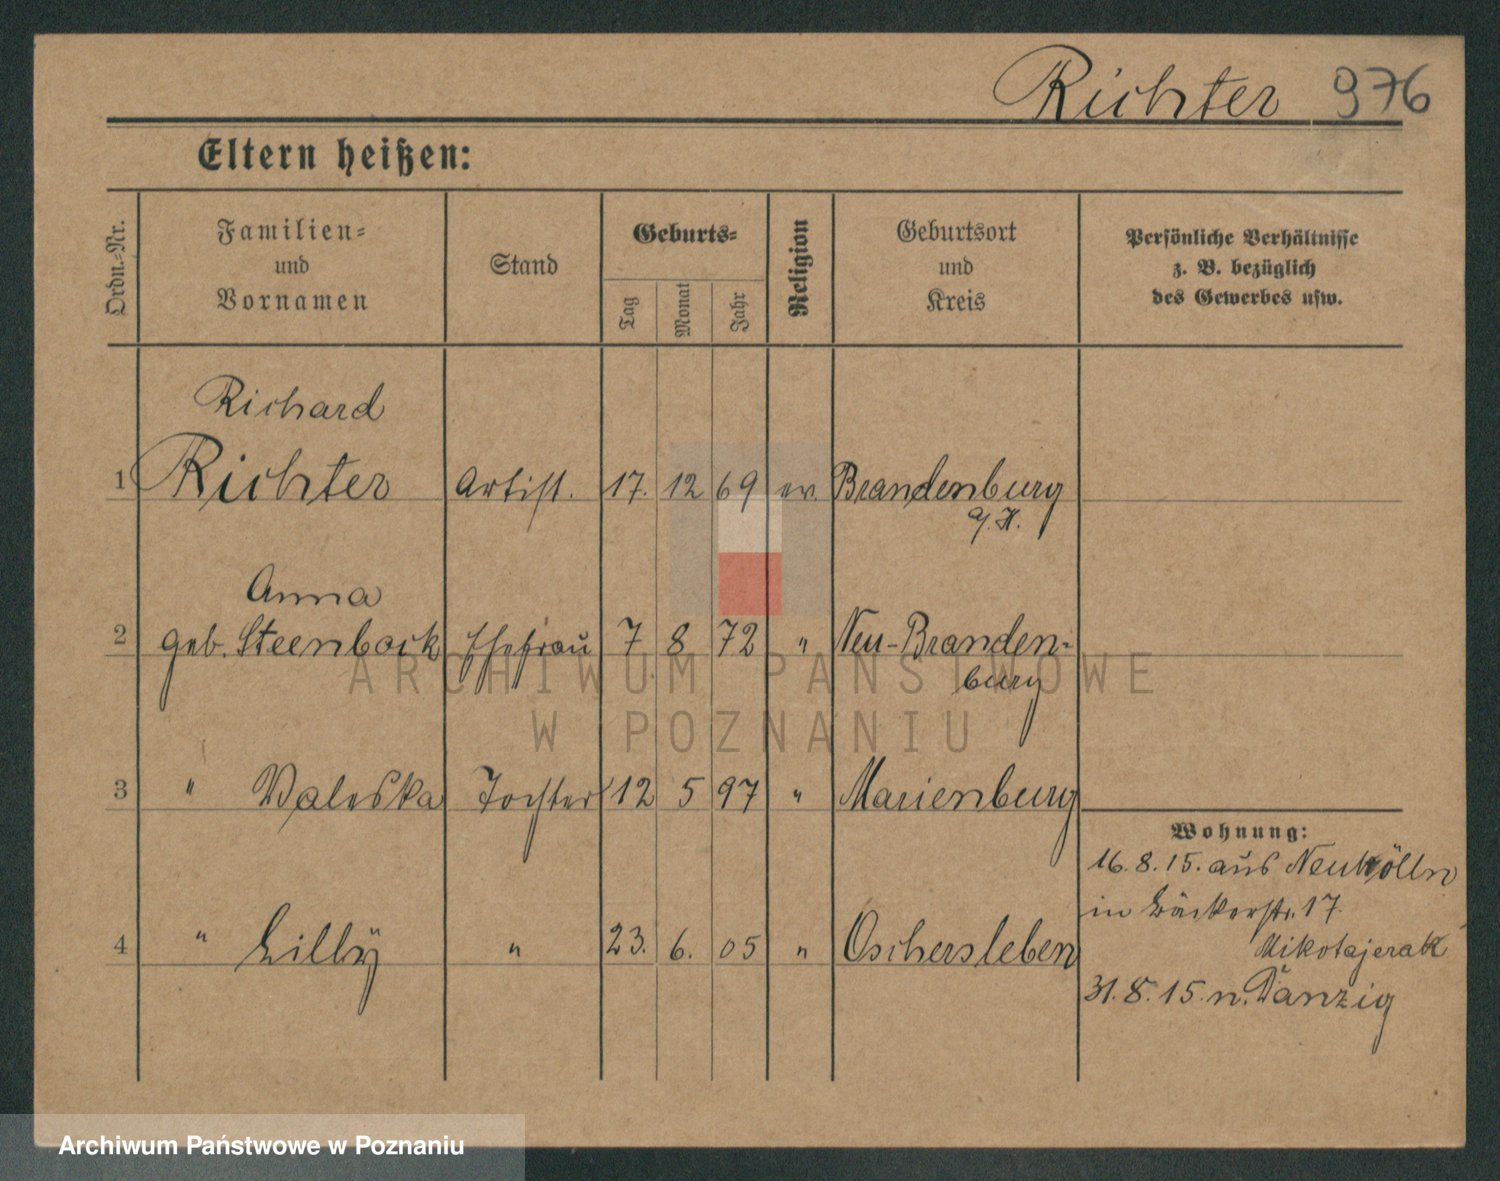 Richter 976
Eltern heißen:
Ordn.-Nr.
Familien-
und
Vornamen
Stand
Geburts-
Tag
Monat
Jahr
Religion
Geburtsort
und
Kreis
Persönliche Verhältnisse
z. B. bezüglich
des Gewerbes usw.
Richard
1 Richter Artist. 17. 12 69 ev. Brandenburg
a/H.
Anna
2 geb. Steenbock Ehefrau 7 8 72 " Neu-Branden-
burg
3 " Valeska Tochter 12 5 97 " Marienburg
Wohnung:
16.8.15. aus Neukölln
in Bäckerstr. 17.
4 " Lilly " 23. 6. 05 " Oschersleben
Mikolajczak
31.8.15. n. Danzig
ARCHIWUM PAŃSTWOWE
W POZNANIU
Archiwum Państwowe w Poznaniu